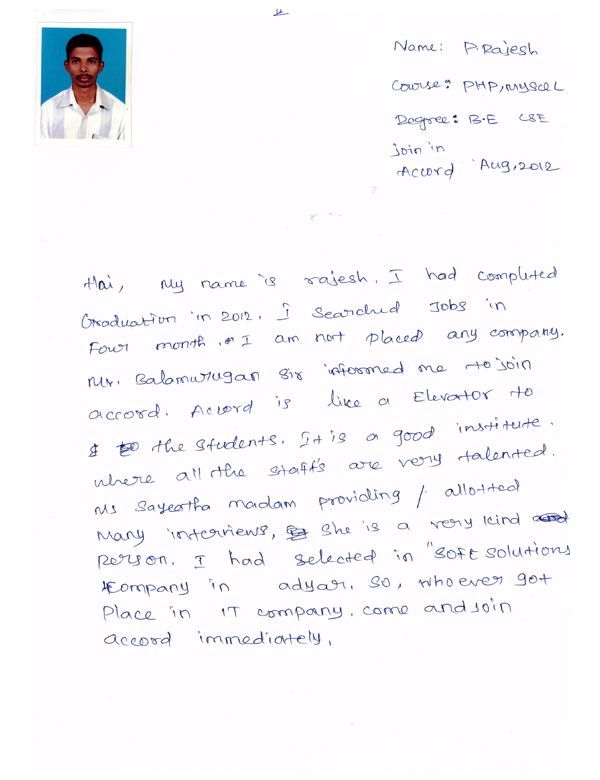 Name: P.Rajesh
Course: PHP, MySQL
Degree: B.E CSE
join in
Accord Aug, 2012
Hai, My name is rajesh. I had completed
Graduation in 2012. I searched Jobs in
Four month. I am not placed any company.
Mr. Balamurugan Sir informed me to join
accord. Accord is like a Elevator to
the students. It is a good institute.
where all the staffs are very talented.
Ms Sayeetha madam providing / allotted
Many interviews, She is a very kind
person. I had selected in "Soft Solutions
Company in adyar. So, whoever got
Place in IT company. come and join
accord immediately.